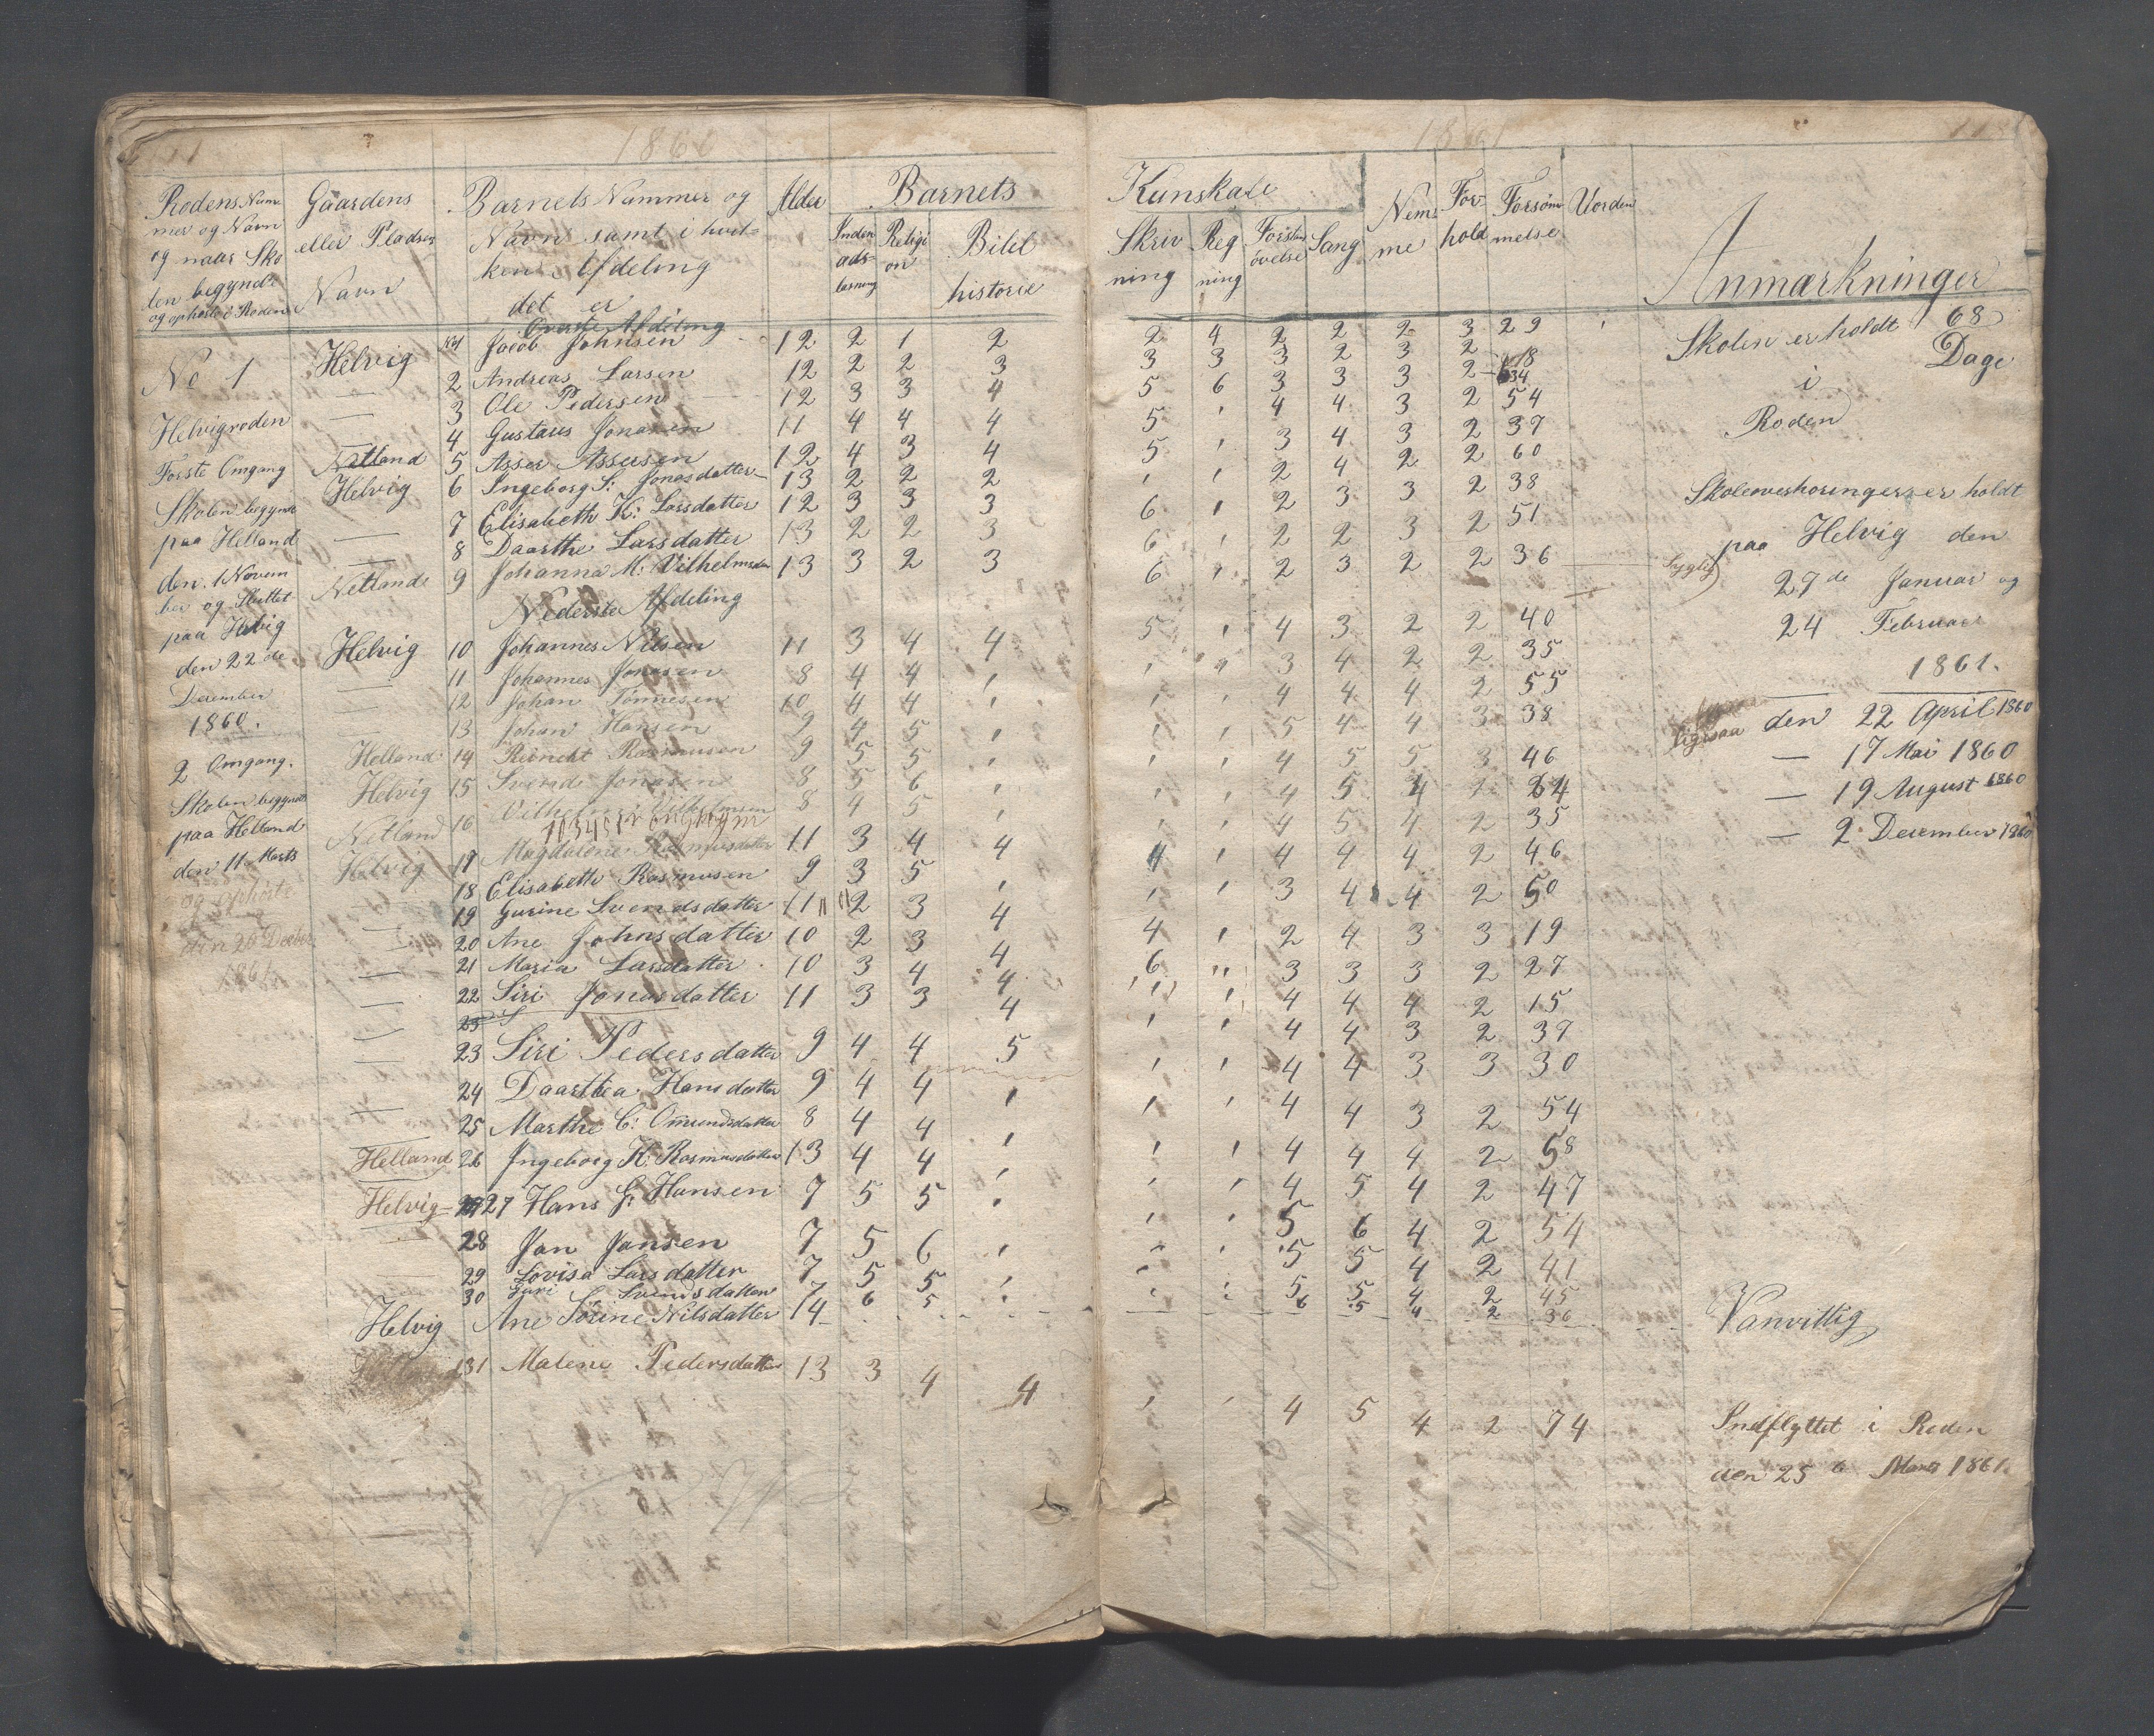 1860
Rodens Num
mer og Navn
og naar Sko
len begynd
og ophörte i Roden
Gaardens
eller Pladsens
Navn
Barnets Nummer og
Navn samt i hvil-
ken Afdeling
det er
Alder
Barnets
Inden
ads-
læsning
Religi
on
Bibel
historie
Øverste Afdeling
No 1 Helvig 1 Jacob Johnsen 12 2 1 2
— 2 Andreas Larsen 12 2 2 3
— 3 Ole Pedersen 12 3 3 4
Helvigroden
4 Gustaus Jonassen 11 4 4 4
Förste Omgang Netland 5 Asser Assersen 12 4 3 4
Skolen begyndt Helvig 6 Ingeborg S: Jonasdatter 13 2 2 2
paa Helland — 7 Elisabeth K: Larsdatter 12 3 3 3
— 8 Daarthe Larsdatter 13 2 2 3
den 1 Novem Netland 9 Johanna M: Vilhelmsdatter 13 3 2 3
ber og Sluttet
paa Helvig
Nederste Afdeling
den 22de Helvig 10 Johannes Nilsen 11 3 4 4
— 11 Johannes Jonasen 8 4 4 ,
December — 12 Johan Tönnesen 10 4 4 ,
1860. — 13 Johan Hansen 9 4 5 ,
2. Omgang. Helland 14 Reinert Rasmusen 9 5 5 ,
Skolen begyndt Helvig 15 Sverad Jonasen 8 5 6 ,
paa Helland Netland 16 Vilhelm Vilhelmsen 8 4 5 ,
den 11 Marts Helvig 17 Magdalene Rasmusdatter 11 3 4 4
og ophörte — 18 Elisabeth Rasmusen 9 3 5 ,
— 19 Gurine Svendsdatter 11 2 3 4
den 20 Decber — 20 Ane Johnsdatter 10 2 3 4
1861 — 21 Maria Larsdatter 10 3 4 4
— 22 Siri Jonasdatter 11 3 3 4
— 23 Siri Pedersdatter 9 4 4 5
24 Daarthea Hansdatter 9 4 4 ,
— 25 Marthe C: Omundsdatter 8 4 4 ,
Helland 26 Ingeborg K: Rasmusdatter 13 4 4 ,
Helvig 27 Hans G: Hansen 7 5 5 ,
28 Jan Jansen 7 5 6 ,
29 Lovisa Larsdatter 7 5 5 ,
30 Guri S. Svendsdatter 7 6 5
Helvig Ane Sörine Nilsdatter 14
31 Malene Pedersdatter 13 3 4 4
1861
Kunskabe
Skriv
ning
Reg
ning
Forstan
övelse
Sang
Nem-
me
For-
hold
Forsöm
melse
Vorden
Anmærkninger
2 4 2 2 2 3 29
3 3 3 2 3 2 18
5 6 3 3 3 2 34
5 , 4 4 3 2 54
5 , 3 4 3 2 37
, , 2 4 2 2 60
6 , 2 3 3 2 38
6 , 2 2 3 2 51
6 , 2 3 2 2 36 Syglig
5 , 4 3 2 2 40
, , 3 4 2 2 35
, , 4 4 4 2 55
, , 5 4 4 3 38
, , 4 5 5 3 46
, , 4 5 4 2 24
, , 4 5 4 2 35
4 , 4 4 4 2 46
, , 3 4 4 2 50
4 , 2 4 3 3 19
6 ,, 3 3 3 2 27
, , 4 4 4 2 15
, , 4 4 3 2 37
, , 4 4 3 3 30
, , 4 4 3 2 54
, , 4 4 4 2 58
, , 4 5 4 2 47
, , 5 6 4 2 54
, , 5 5 4 2 41
, , 5 5 4 2 45
6 5 4 2 36 Vanvittig
, , 4 5 4 2 74
Skolen er holdt 68
Dage
i
Roden
Skoleoverhöringer er holdt
paa Helvig den
27de Januar og
24 Februar
1861.
ligesaa den 22 April 1860
— 17 Mai 1860
— 19 August 1860
— 2 December 1860
Indflyttet i Roden
den 25 Marts 1861.